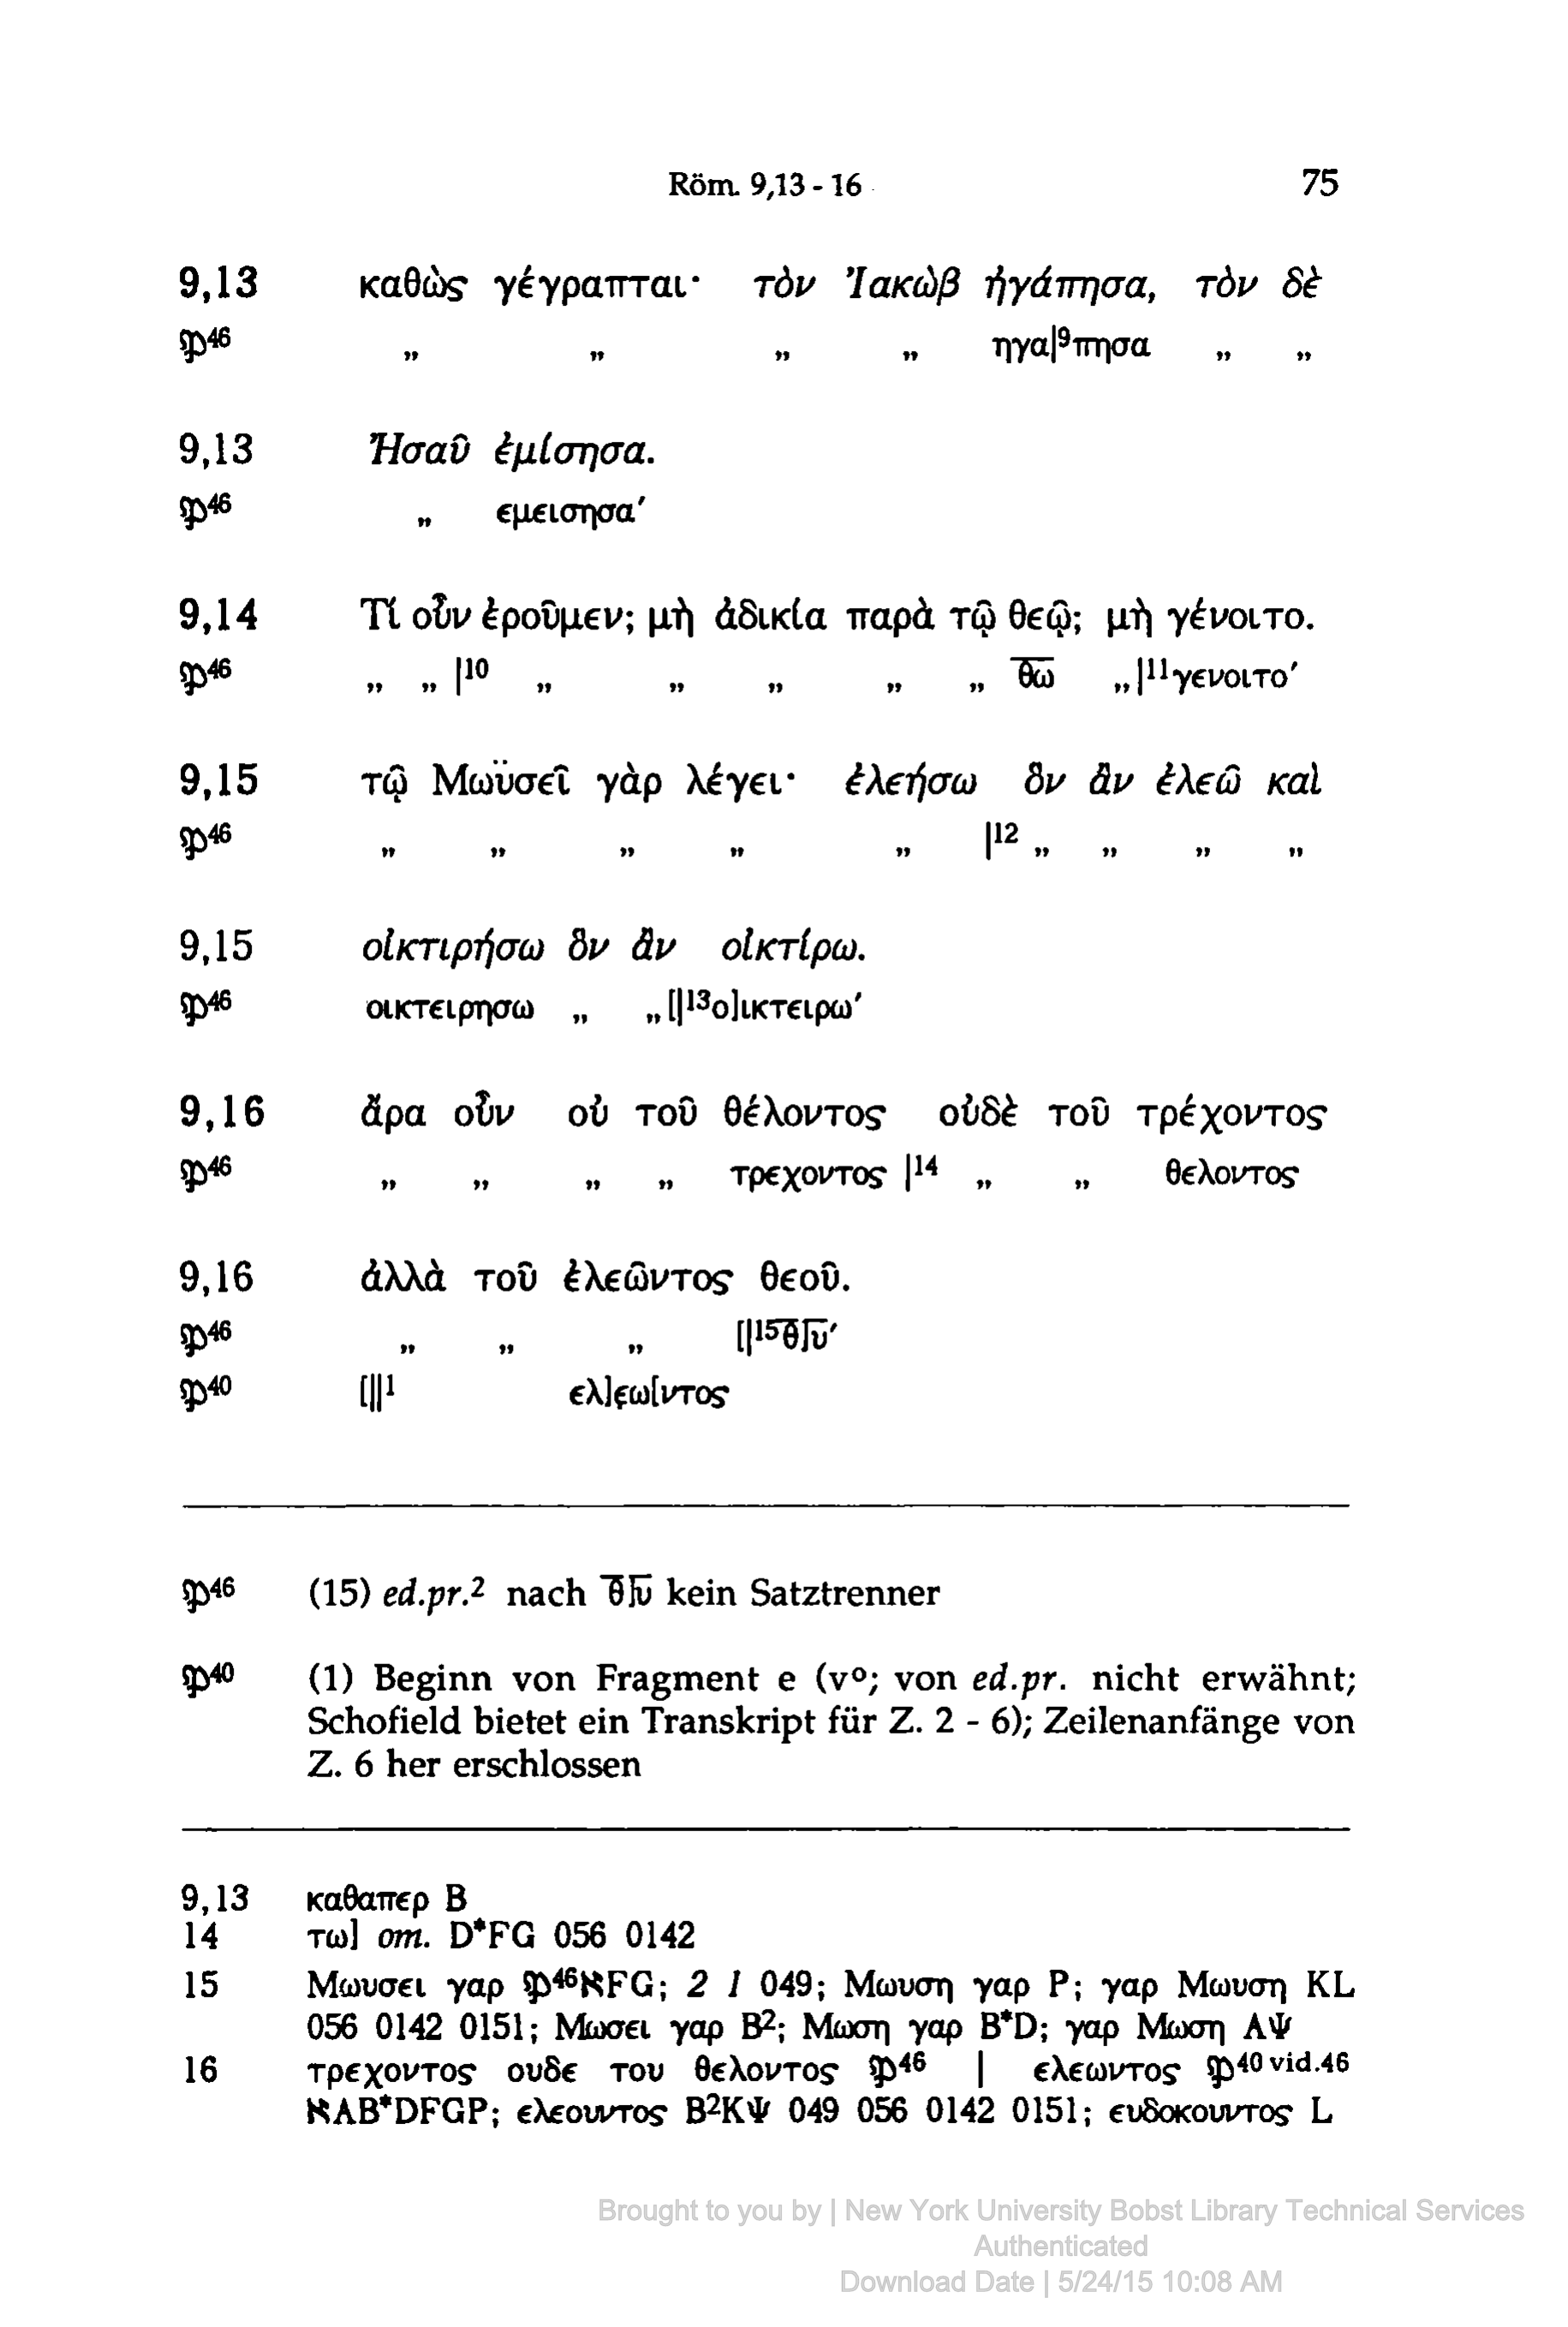 Röm. 9,13 - 16 75
9,13 καθὼς γέγραπται· τὸν Ἰακὼβ ἠγάπησα, τὸν δὲ
𝔓46 „ „ „ „ ηγα|9πησα „ „
9,13 Ἠσαῦ ἐμίσησα.
𝔓46 „ εμεισησα′
9,14 Τί οὖν ἐροῦμεν; μὴ ἀδικία παρὰ τῷ θεῷ; μὴ γένοιτο.
𝔓46 „ „ |10 „ „ „ „ „ θ̅ω̅ „|11γενοιτο′
9,15 τῷ Μωϋσεῖ γὰρ λέγει· ἐλεήσω ὃν ἂν ἐλεῶ καὶ
𝔓46 „ „ „ „ „ |12 „ „ „ „
9,15 οἰκτιρήσω ὃν ἂν οἰκτίρω.
𝔓46 οικτειρησω „ „[|13ο]ικτειρω′
9,16 ἄρα οὖν οὐ τοῦ θέλοντος οὐδὲ τοῦ τρέχοντος
𝔓46 „ „ „ „ τρεχοντος |14 „ „ θελοντος
9,16 ἀλλὰ τοῦ ἐλεῶντος θεοῦ.
𝔓46 „ „ „ [|15θ̅]υ̅′
𝔓40 [||1 ελ]ε̣ω[ντος
𝔓46 (15) ed.pr.2 nach θ̅]υ̅ kein Satztrenner
𝔓40 (1) Beginn von Fragment e (vo; von ed.pr. nicht erwähnt;
Schofield bietet ein Transkript für Z. 2 - 6); Zeilenanfänge von
Z. 6 her erschlossen
9,13 καθαπερ B
14 τω] om. D*FG 056 0142
15 Μωυσει γαρ 𝔓46אFG; 2 1 049; Μωυση γαρ P; γαρ Μωυση KL
056 0142 0151; Μωσει γαρ B2; Μωση γαρ B*D; γαρ Μωση AΨ
16 τρεχοντος ουδε του θελοντος 𝔓46 | ελεωντος 𝔓40 vid.46
אAB*DFGP; ελεουντος B2KΨ 049 056 0142 0151; ευδοκουντος L
Brought to you by | New York University Bobst Library Technical Services
Authenticated
Download Date | 5/24/15 10:08 AM